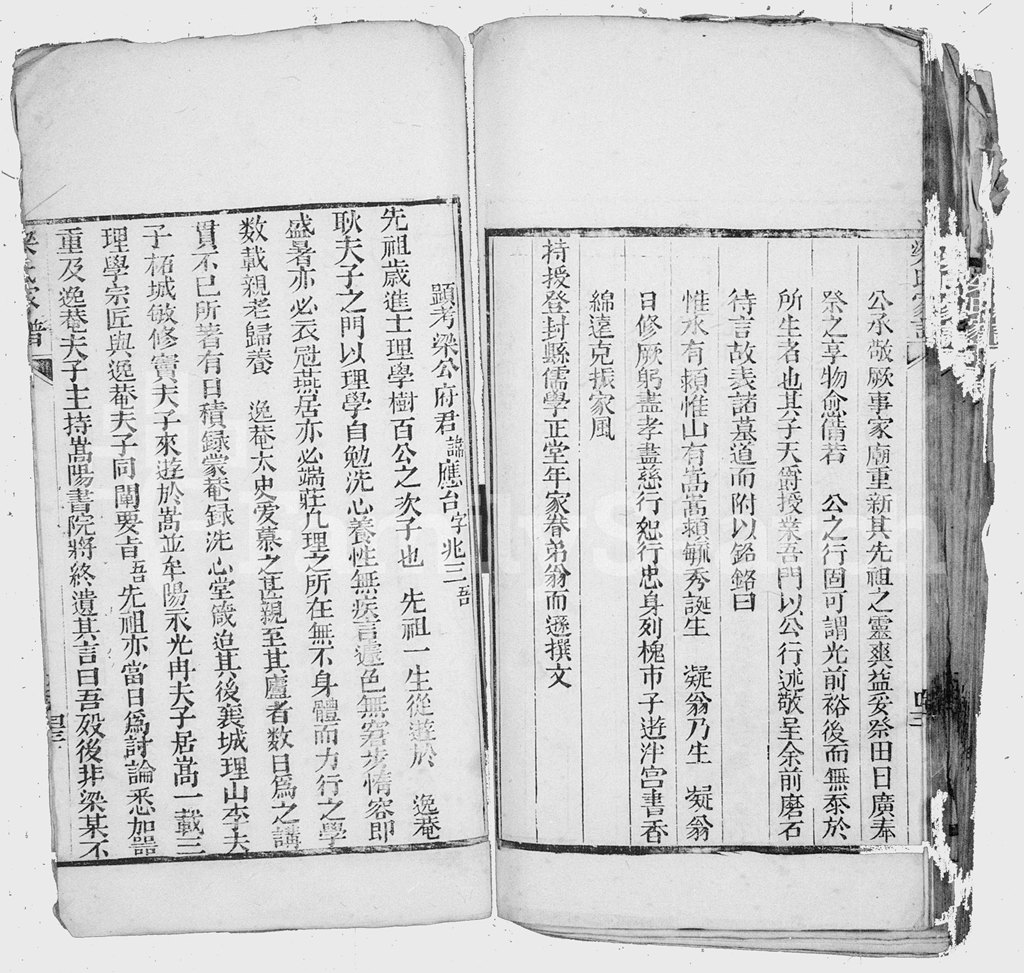 公承敬厥事家廟重新其先祖之靈爽益妥祭田日廣奉
祭之享物愈偹若　公之行固可謂光前裕後而無忝於
所生者也其子天爵授業吾門以公行述敬呈余前磨石
待言故表諸墓道而附以銘銘曰
惟水有潁惟山有嵩嵩潁毓秀誕生　凝翁乃生　凝翁
日修厥躬盡孝盡慈行恕行忠身列槐市子遊泮宮書香
綿遠克振家風
持授登封縣儒學正堂年家眷弟翁而遜撰文
顕考梁公府君諱應台字兆三吾
先祖歲進士理學樹百公之次子也　先祖一生從遊於　逸菴
耿夫子之門以理學自勉洗心養性無疾言遽色無窘步惰容即
盛暑亦必衣冠燕居亦必端莊凢理之所在無不身體而力行之學
数載親老歸養　逸菴太史爱慕之甚親至其廬者数日爲之講
貫不已所著有日積録蒙菴録洗心堂箴迨其後襄城理山李夫
子柘城敏修竇夫子來遊於嵩並牟陽永光冉夫子居嵩一載三
理學宗匠與逸菴夫子同闡要旨吾先祖亦當日爲討論悉加器
重及逸菴夫子主持嵩陽書院將終遺其言曰吾殁後非梁某不
梁氏家譜
四三